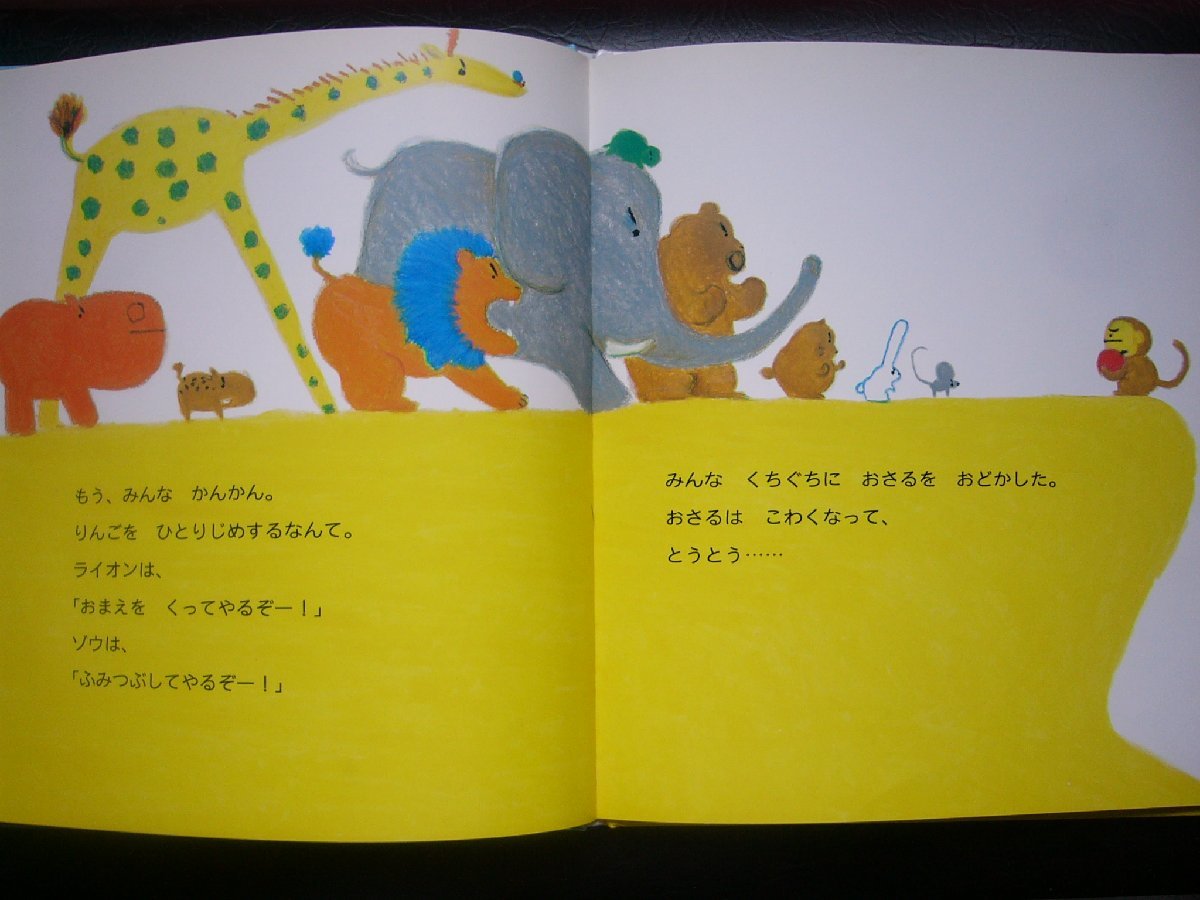 もう、みんな　かんかん。
りんごを　ひとりじめするなんて。
ライオンは、
「おまえを　くってやるぞー！」
ゾウは、
「ふみつぶしてやるぞー！」
みんな　くちぐちに　おさるを　おどかした。
おさるは　こわくなって、
とうとう……